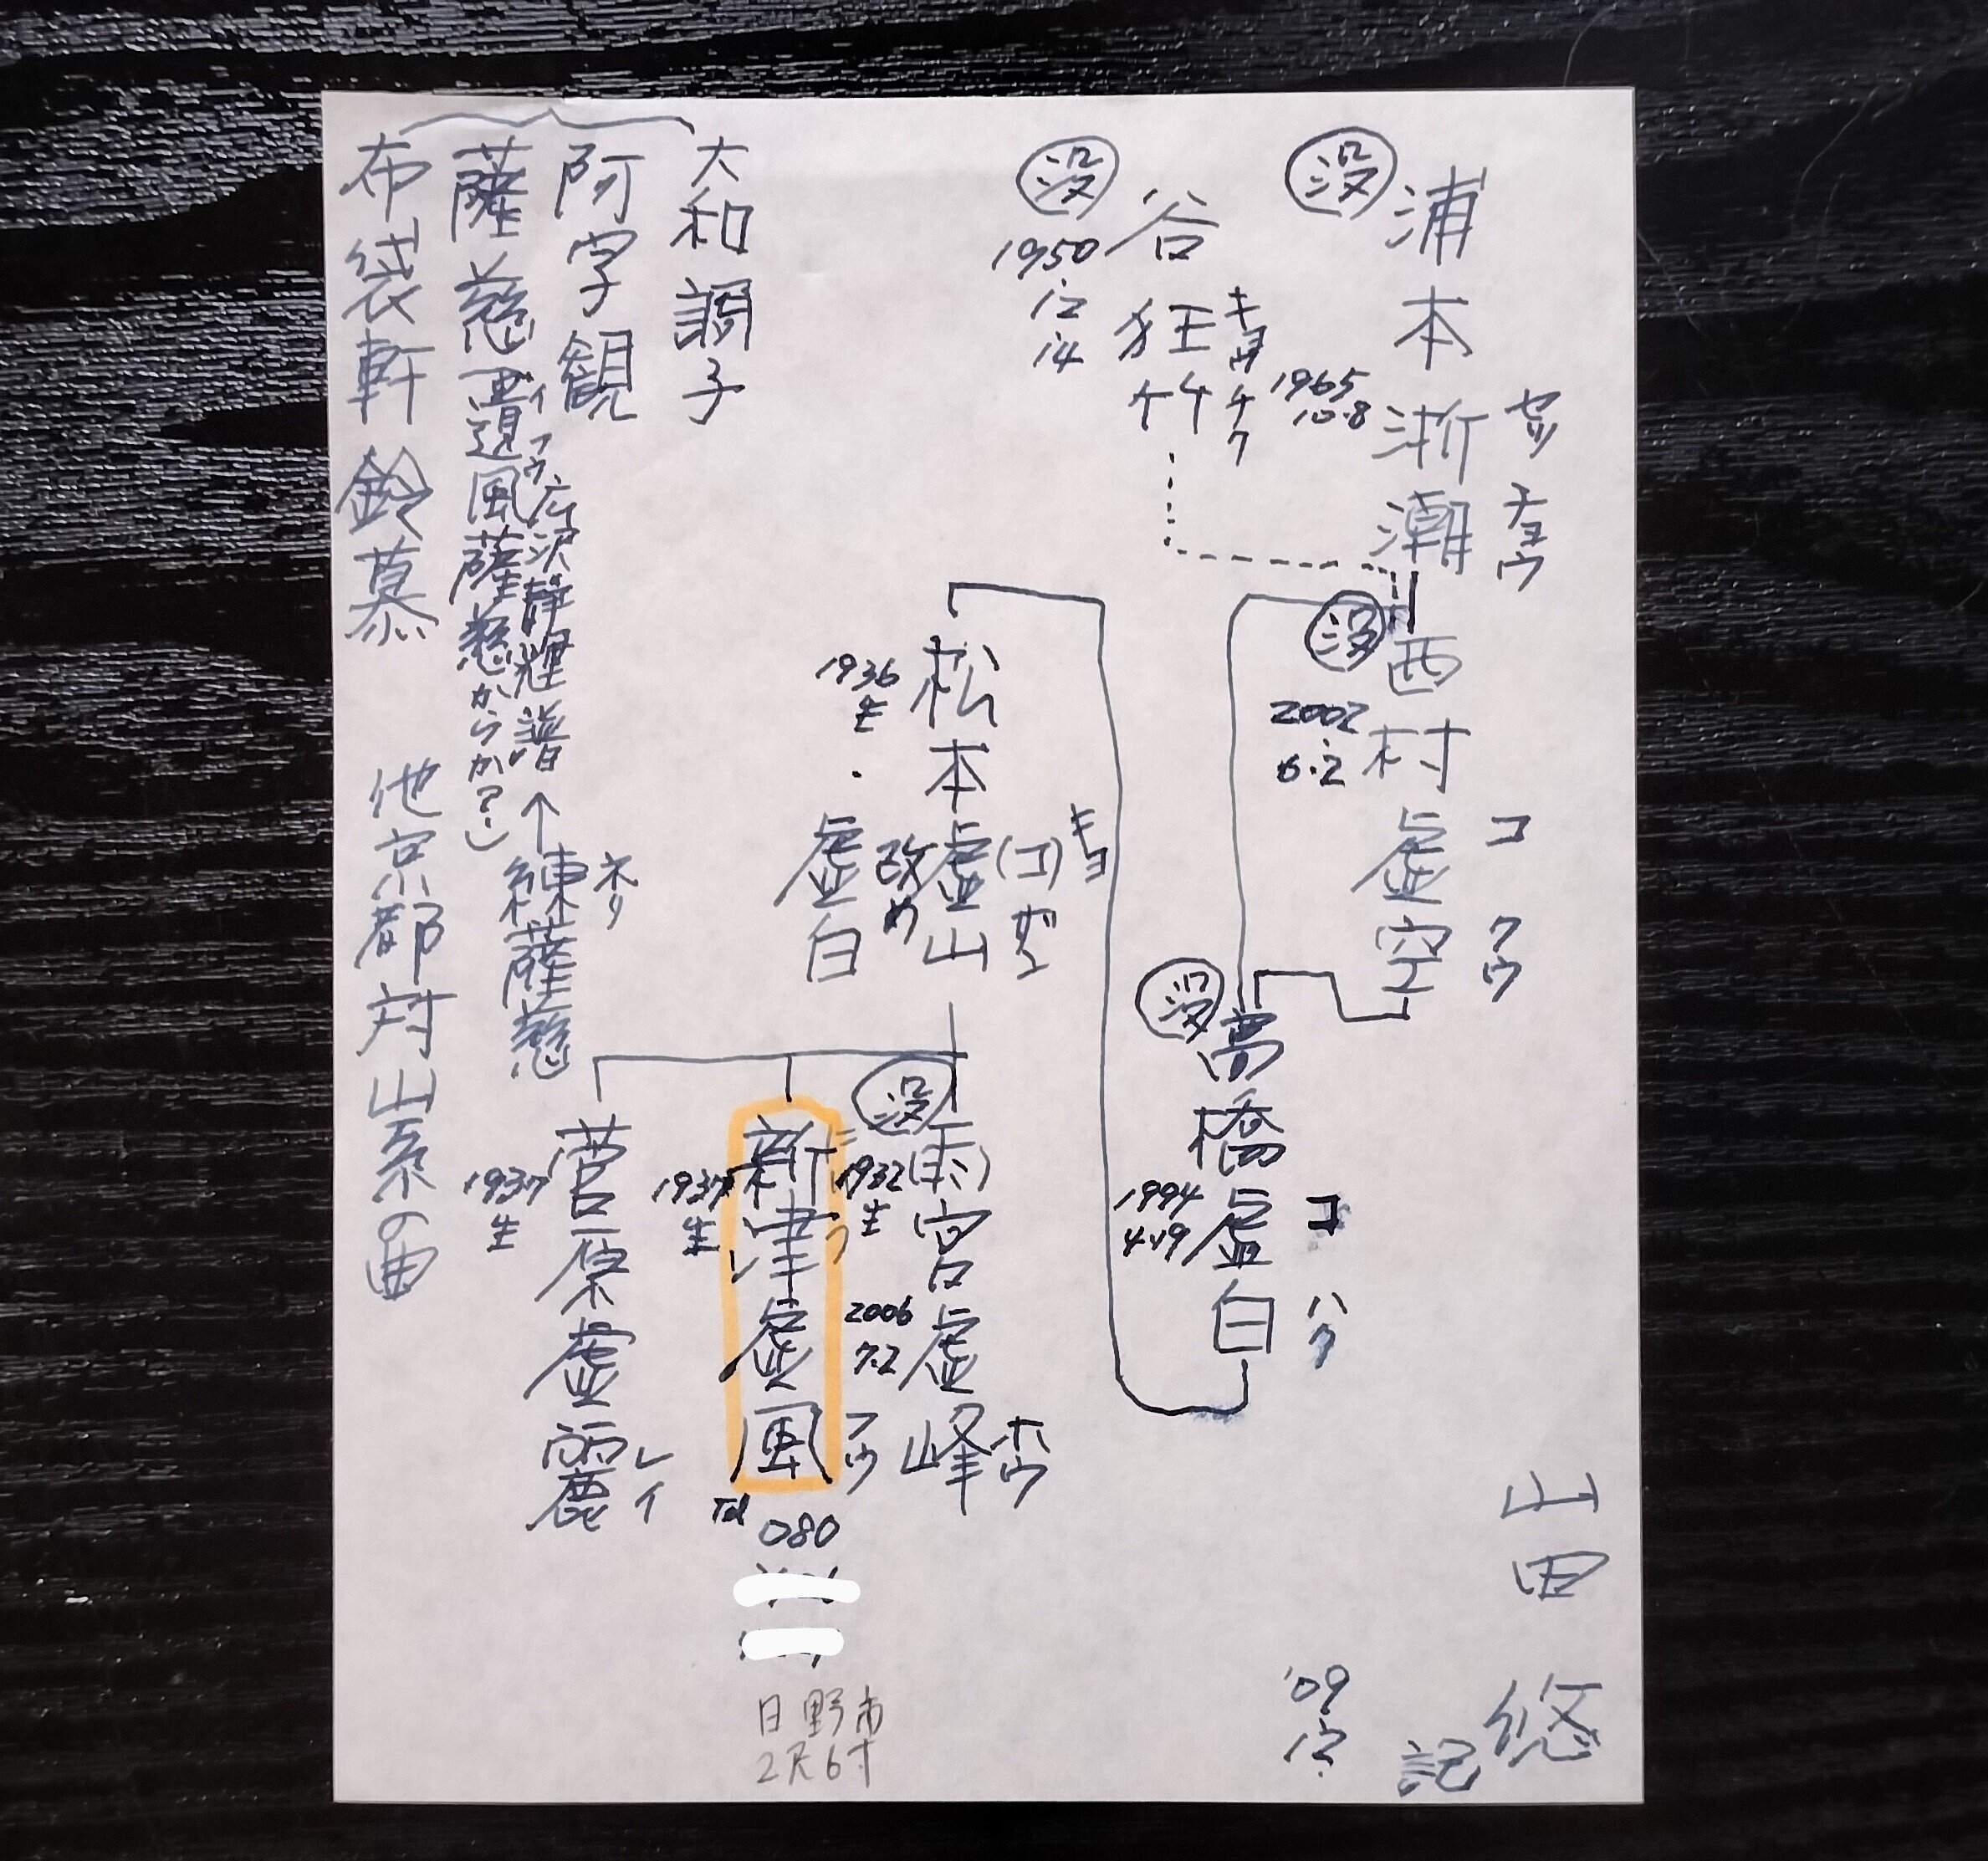 浦本浙潮
セッ
チョウ
没
1965
10.8
谷狂竹
キョウ
チク
没
1950
12
14
西村虚空
コ
クウ
没
2002
6.2
高橋虚白
コ
ハク
没
1994
4.19
松本虚山
キョ
(コ)
ザン
改め
虚白
1936
生
雨宮虚峰
ホウ
没
1932
生
2006
7.2
新津虚風
ニ
フウ
1937
生
Tel
080
日野市
2尺6寸
菅原虚麗
レイ
1937
生
大和調子
阿字観
薩慈
遺風薩慈からか?)
イフウ
広沢静輝譜
↑
練薩慈
ネリ
布袋軒鈴慕
他京都対山系の曲
山田悠
記
'09
12.